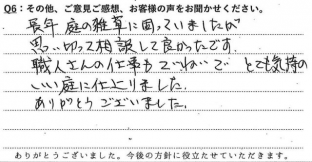 Q6：その他、ご意見ご感想、お客様の声をお聞かせください。
長年 庭の雑草に困っていましたが
思い切って相談して良かったです。
職人さんの仕事もていねいで とても気持の
いい庭に仕上りました。
ありがとうございました。
ありがとうございました。今後の方針に役立たせていただきます。